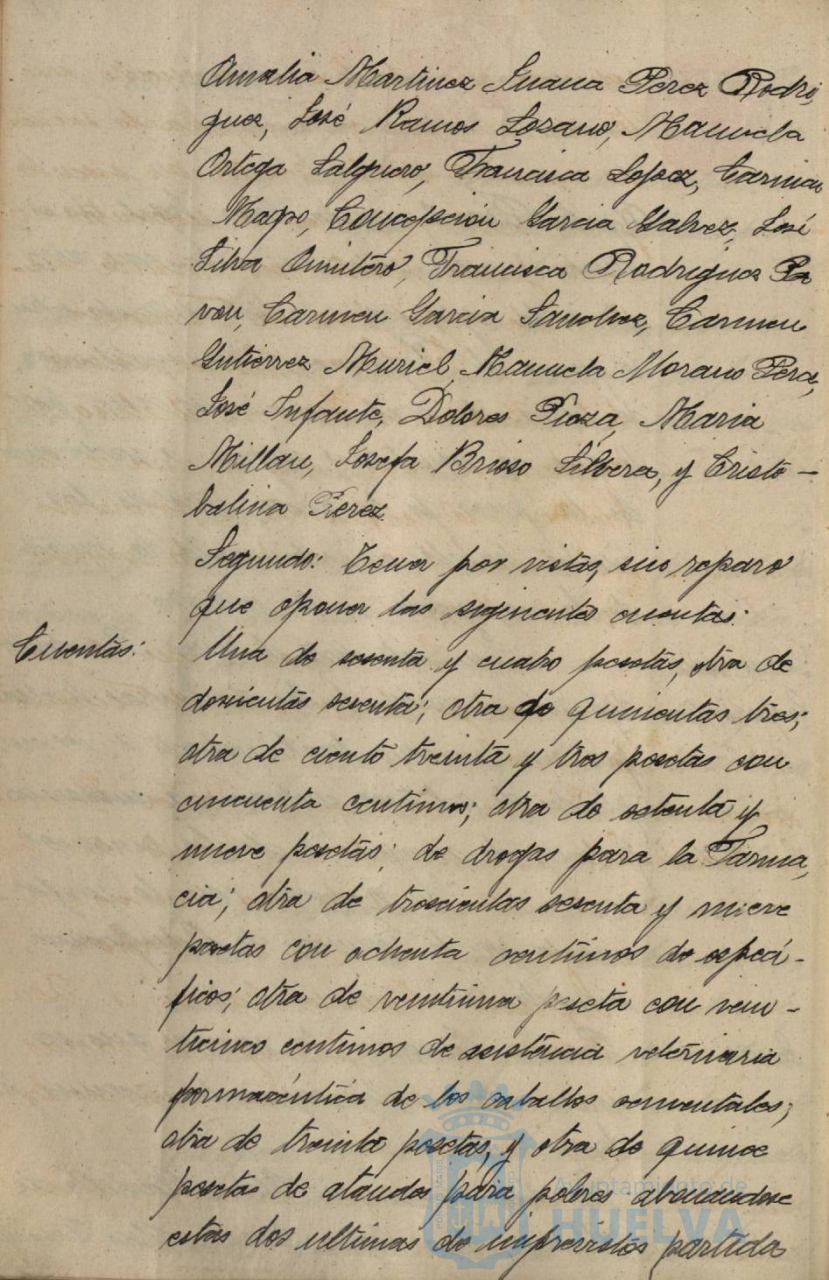 Amalia Martinez Juana Perez Rodri,
guez, José Ramos Lozano, Manuela
Ortega Salguero, Francisca Lopez, Carmen
Magro, Concepción Garcia Galvez, José
Silva Francisca Rodriguez Pa
von, Carmen Garcia Sanchez, Carmen
Gutierrez Muriel, Manuela Morano Pera,
José Infante, Dolores Maria
Millan, Josefa Brioso Silvera, y Cristo-
balina Perez
Segundo: Tener por vistas, sin reparo
que oponer las siguientes cuentas:
Cuentas: Una de sesenta y cuatro pesetas, otra de
doscientas sesenta; otra de quinientas tres;
otra de ciento treinta y tres pesetas con
cincuenta centimos; otra de setenta y
nueve pesetas; de drogas para la Farma,
cia; otra de trescientas sesenta y nueve
pesetas con ochenta centimos de especi-
ficos; otra de veintiuna peseta con vein-
ticinco centimos de asistencia veterinaria
farmacéutica de los caballos sementales;
otra de treinta pesetas, y otra de quince
pesetas de ataudes para pobres abonandose
estas dos ultimas de imprevistos partida
Ayuntamiento de
HUELVA